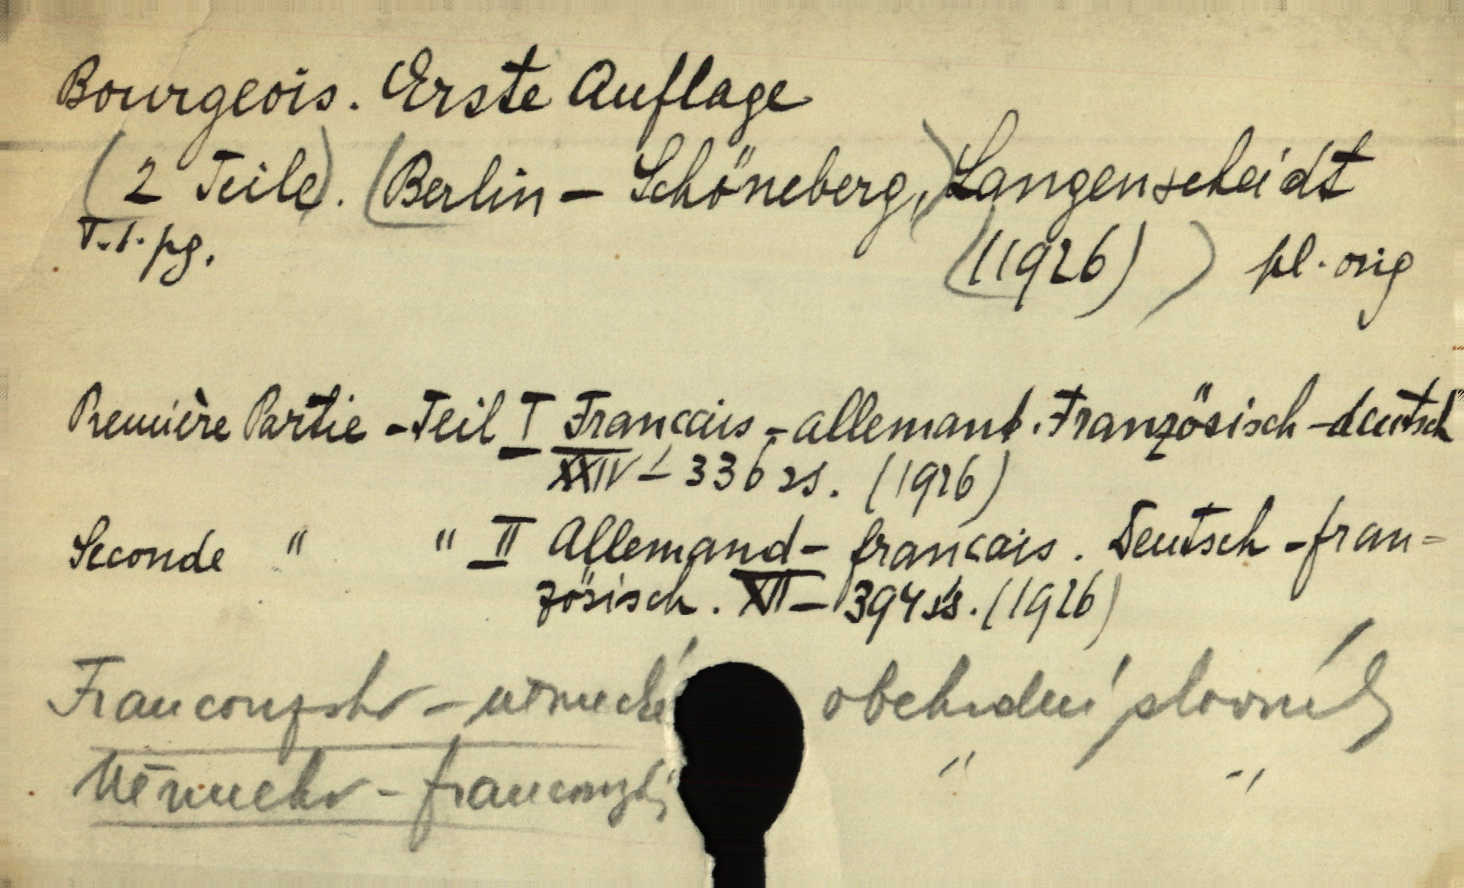 Bourgeois. Erste Auflage
(2 Teile). (Berlin - Schöneberg,) Langenscheidt
T. 1. pg. ((1926)) pl. orig
Première Partie - Teil I Francais - allemand. Französisch - deutsch
XXIV - 336 ss. (1926)
Seconde " " II Allemand - francais. Deutsch - fran=
zösisch. XII - 394 ss. (1926)
Francouzsko - německý obchodní slovník
Německo - francouzský " "